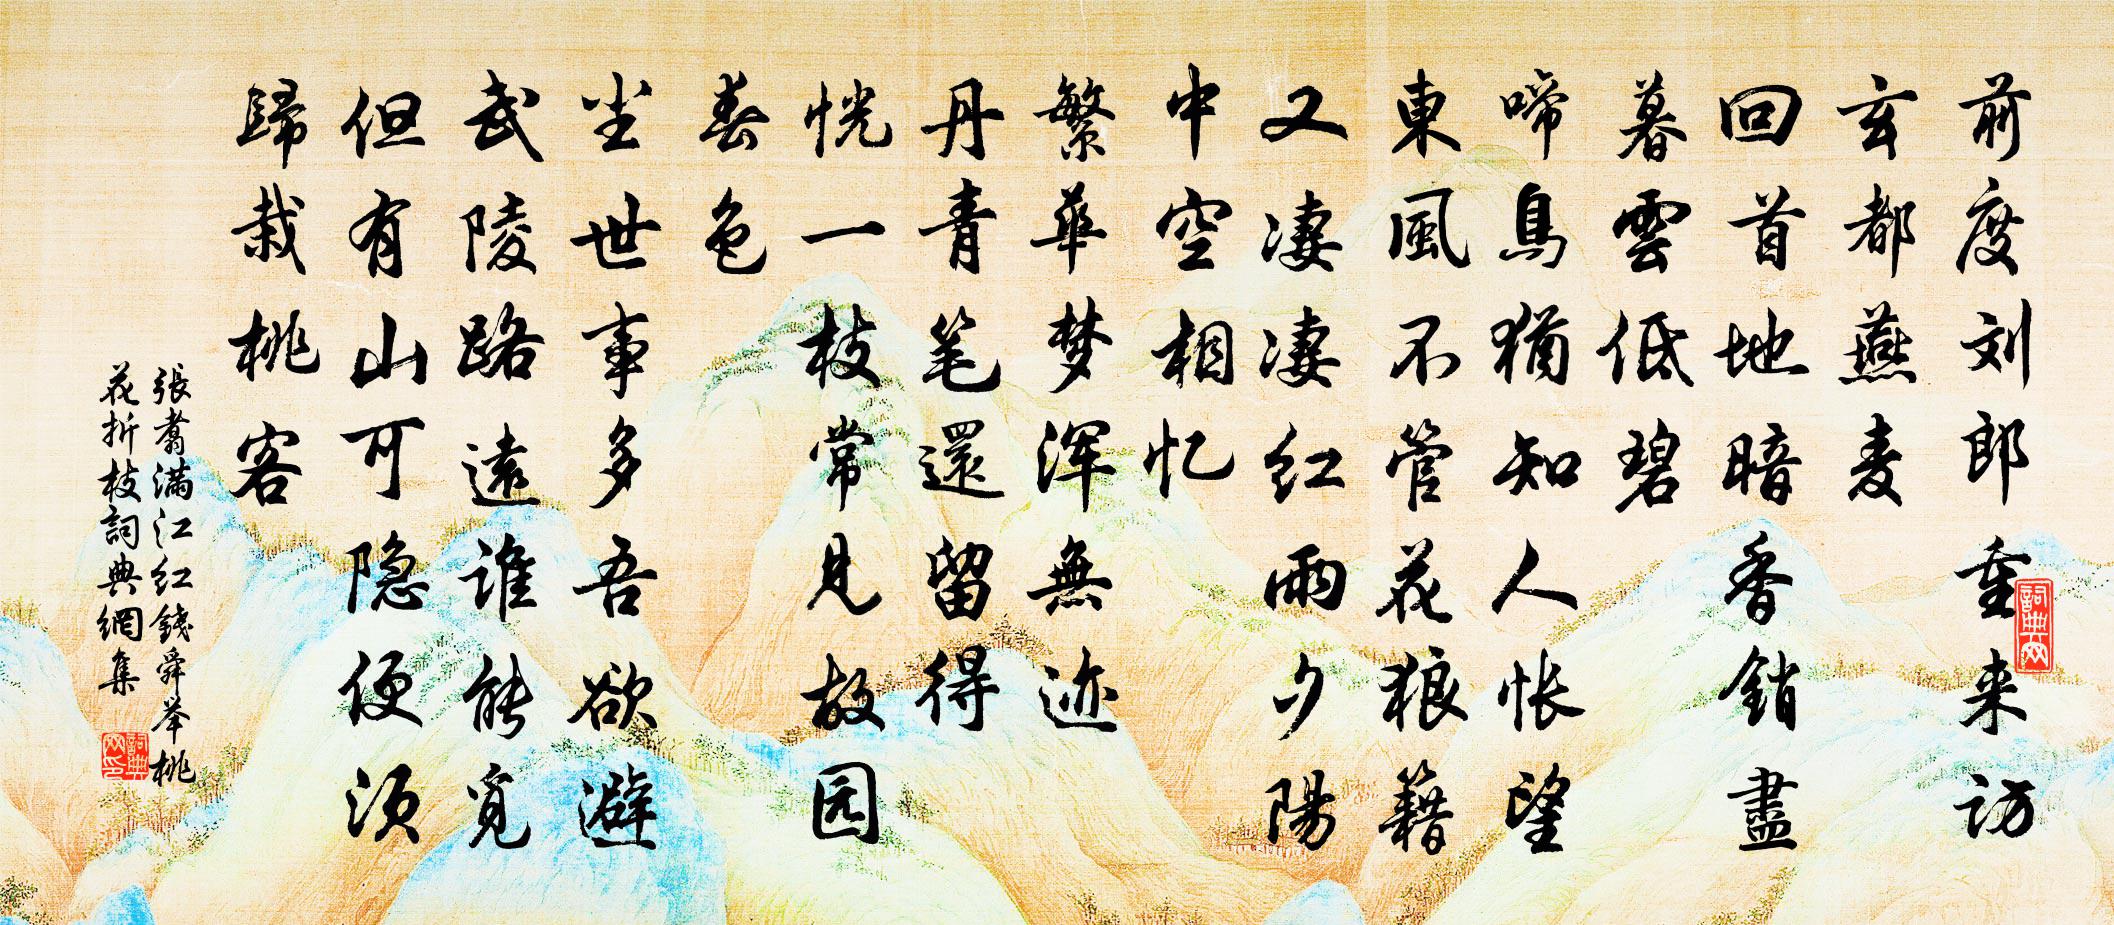 前度刘郎重来访
玄都燕麦
回首地暗香銷盡
暮雲低碧
啼鳥猶知人怅望
東風不管花狼籍
又凄凄红雨夕陽
中空相忆
繁華梦浑無迹
丹青笔還留得
恍一枝常见故园
春色
尘世事多吾欲避
武陵路遠谁能覓
但有山可隐便須
歸栽桃客
張翥满江红錢舜举桃
花折枝詞典網集
詞典网
詞典网印